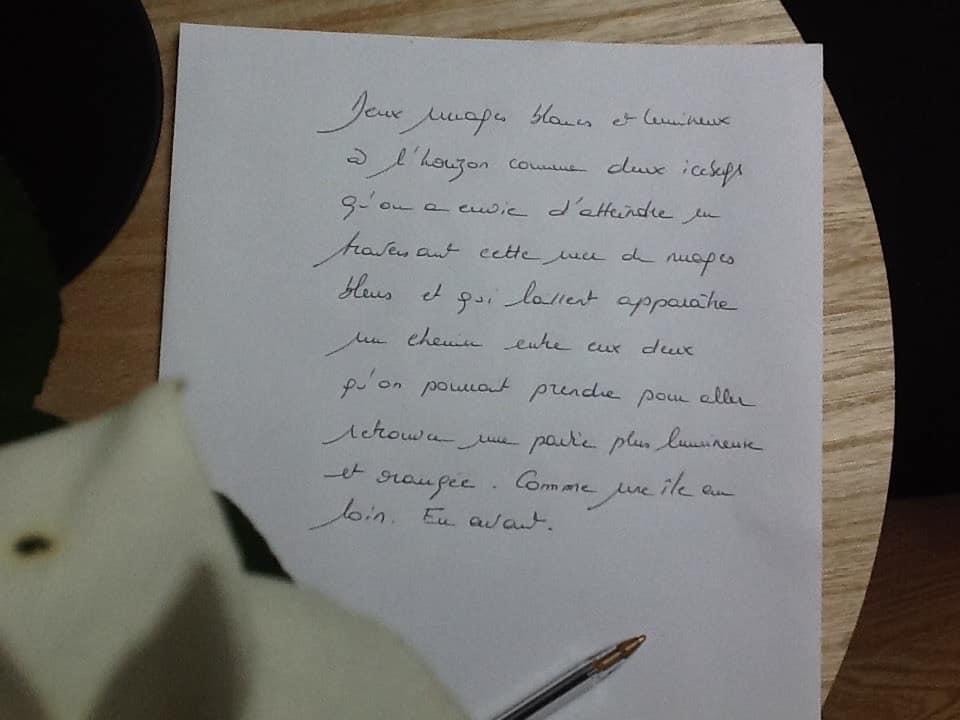 Deux nuages blancs et lumineux
à l'horizon comme deux icebergs
qu'on a envie d'atteindre en
traversant cette mer de nuages
bleus et qui laissent apparaître
un chemin entre eux deux
qu'on pourrait prendre pour aller
retrouver une partie plus lumineuse
et orangée. Comme une île au
loin. En avant.